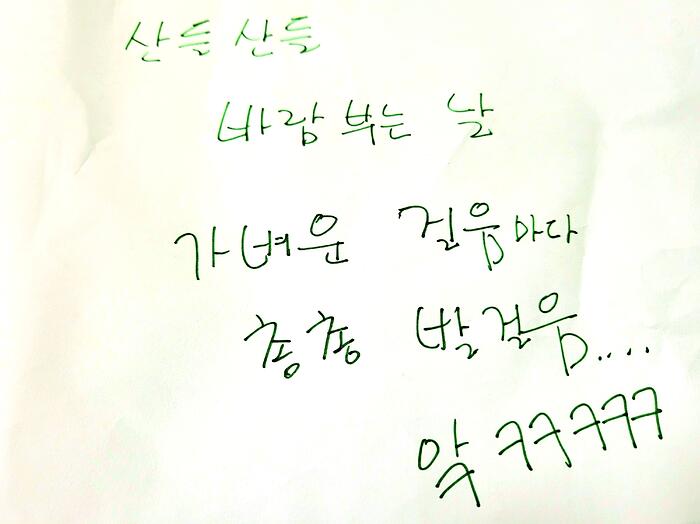 산들 산들
바람 부는 날
가벼운 걸음마다
총총 발걸음....
앜ㅋㅋㅋㅋㅋ